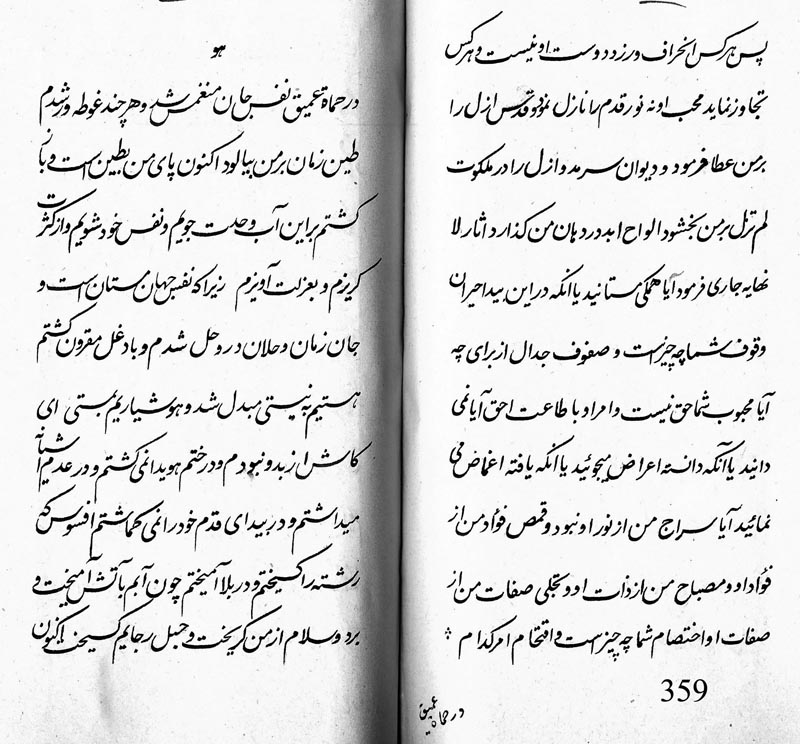 پس هرکس انحراف ورزد دوست او نیست و هرکس
تجاوز نماید محب او نه نور قدم را نازل نمود و قدس ازل را
بر من عطا فرمود و دیوان سرمد و ازل را در ملکوت
لم تزل بر من بخشود الواح ابد در دهان من گذارد آثار لا
نهایه جاری فرمود آیا همگی مستانید یا انکه در این بیدا حیران
وقوف شما چه چیز است و صفوف جدال از برای چه
آیا محبوب شما حق نیست و امر او با طاعت احق آیا نمی
دانید یا آنکه دانسته اعراض میجوئید یا انکه یافته اغماض می
نمائید آیا سراج من از نور او نبود و قمص فؤاد من از
فؤاد او و مصباح من از ذات او و تجلی صفات من از
صفات او اختصام شما چه چیز است و اقتحام امر کدام
359
در حماة عمیق
هو
در حماة عمیق نفس جان منغمس شد و هر چند غوطه ور شدم
طین زمان بر من بیالود اکنون پای من بطین است و بان
کشتم بر این آب وحدت جویم و نفس خود شویم و از کثرت
کریزم و بعزلت آویزم زیرا که نفس جهان مستان است و
جان زمان و حلان در وحل شدم و با دغل مقرون کشتم
هستیم به نیستی مبدل شد و هوشیاریم بمستی ای
کاش از بدو نبودم و در ختم هویدا نمی کشتم و در عدم آشیانه
میداشتم و در بیدای قدم خود را نمی کماشتم افسوس که
رشته را کسیختم و در بلا آمیختم چون آبم با آتش آمیخت و
برد و سلام از من کریخت و حبل رجایم کسیخت و اکنون